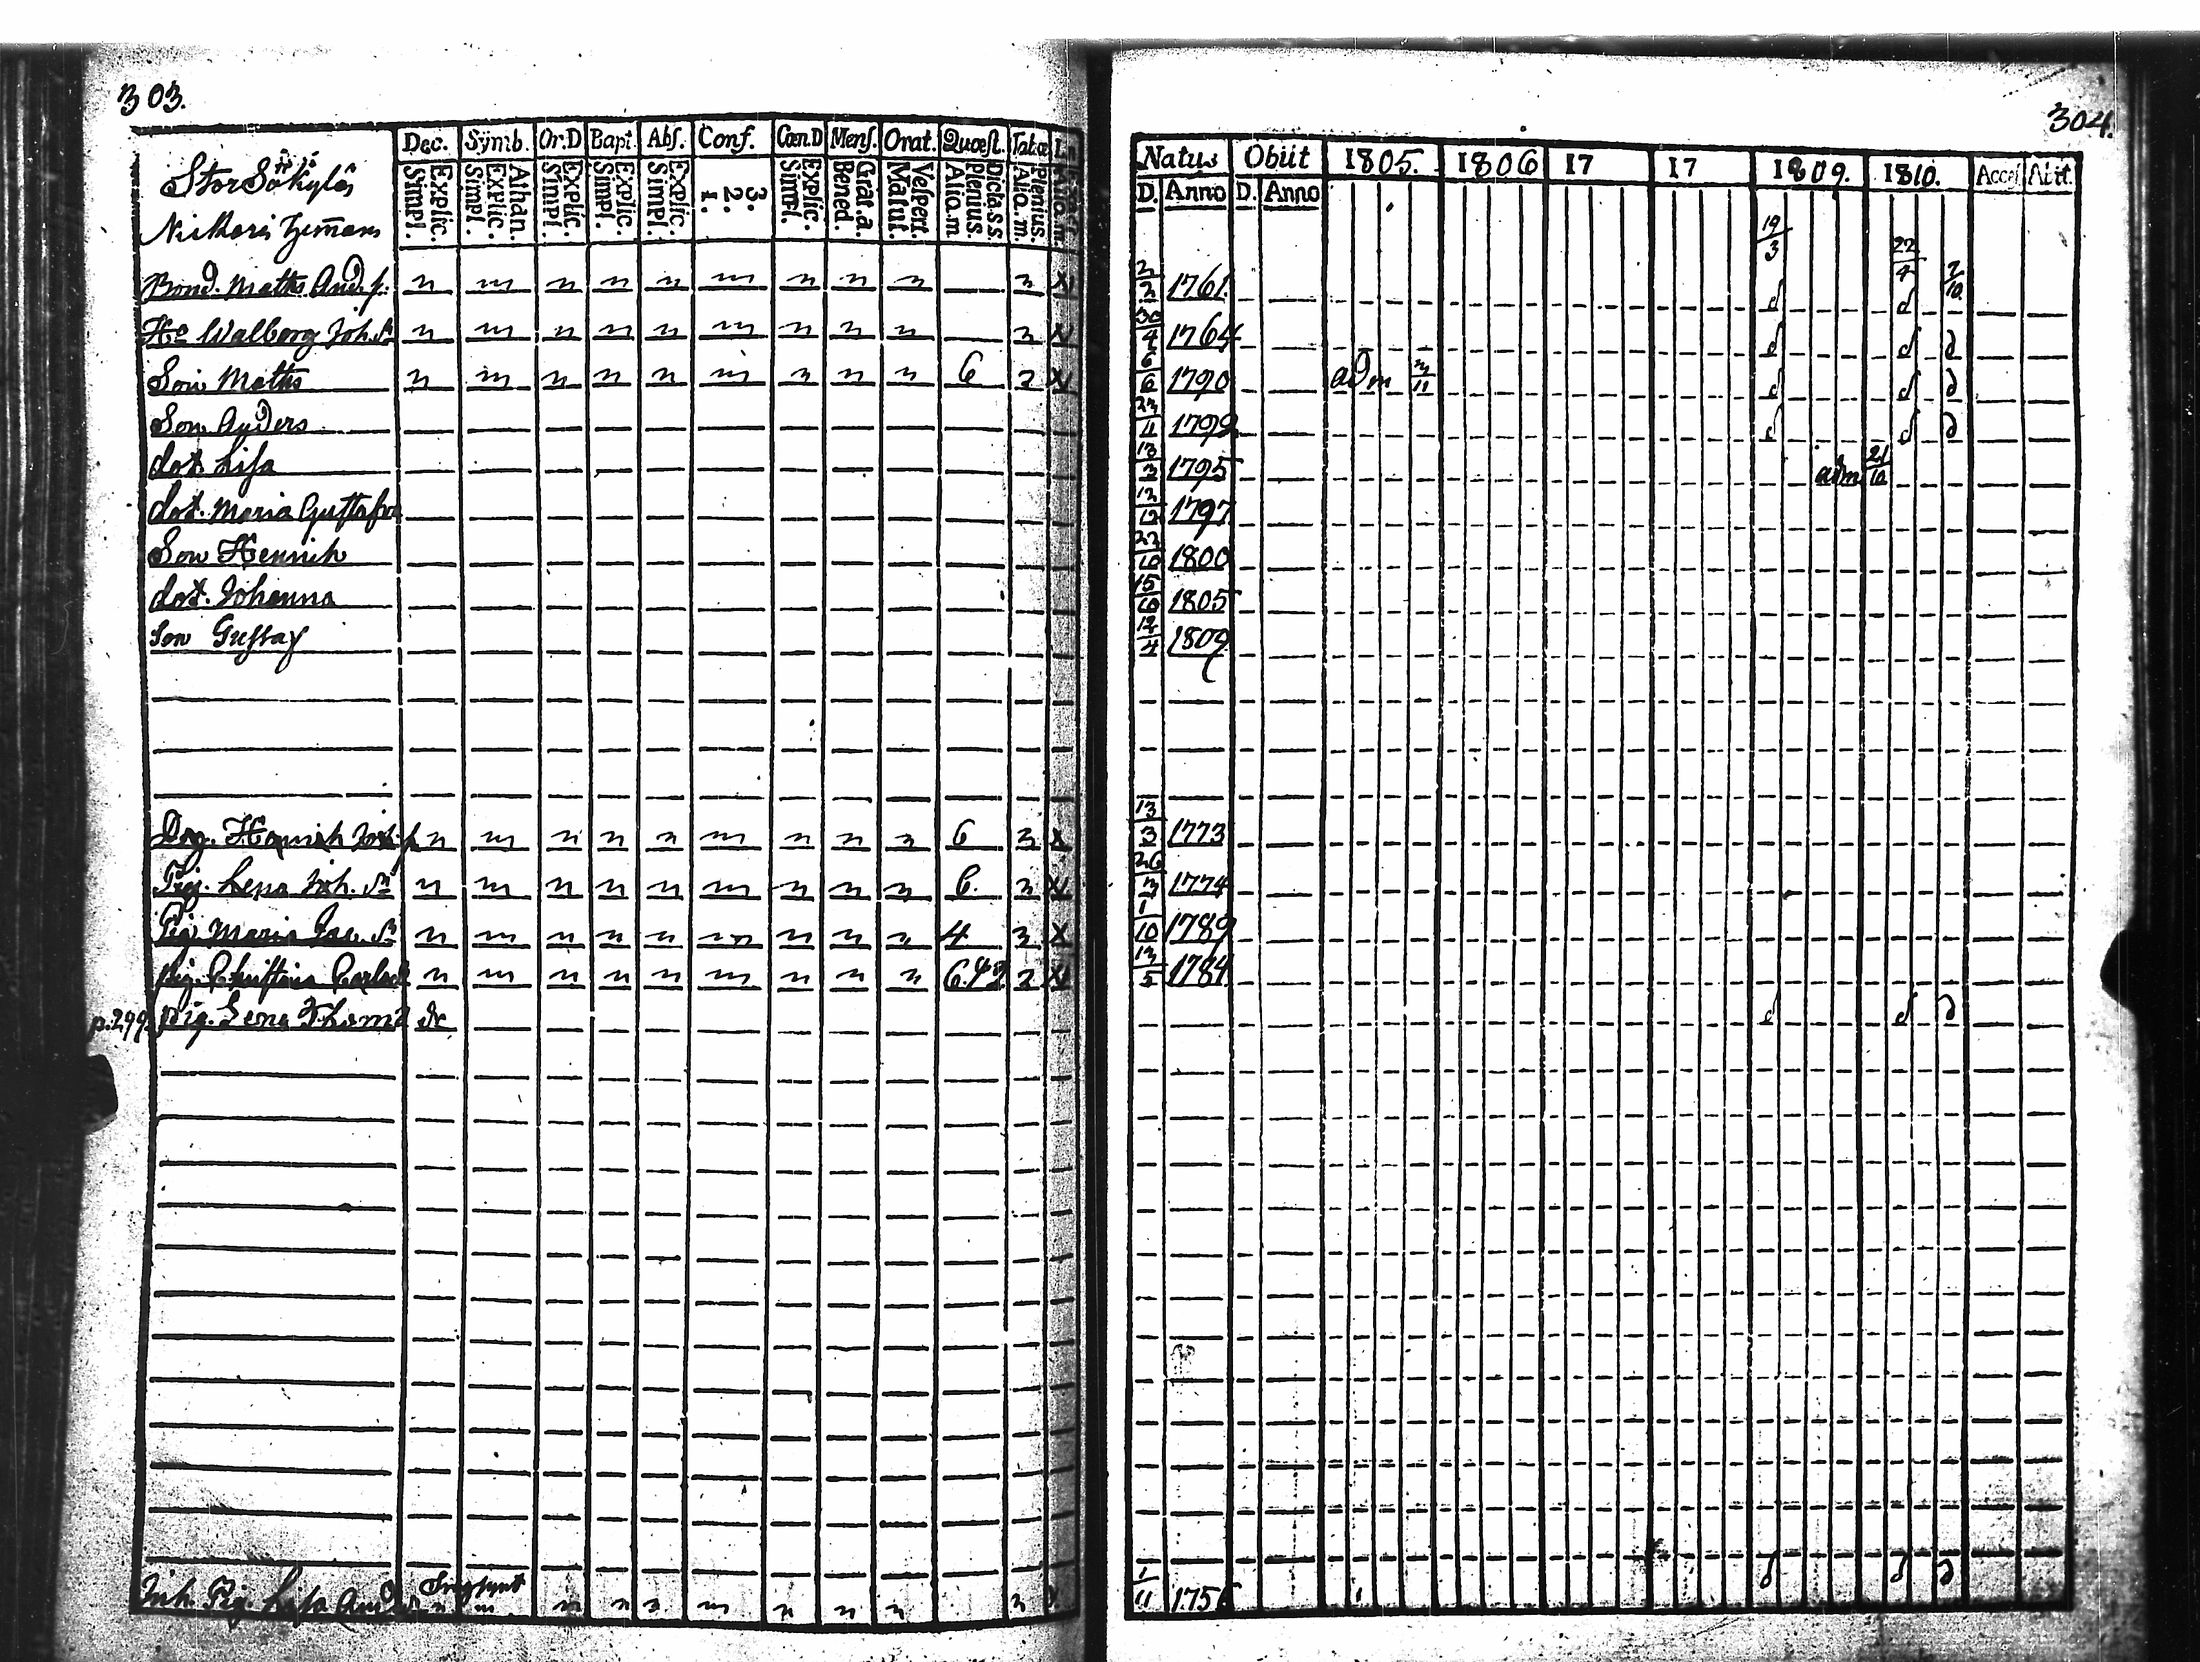 303.
304.
Dec. Symb. Or.D Bapt. Abs. Conf. Cœn.D Mens. Orat. Quæst. Tab.œ
Explic. Simpl. Athan. Explic. Simpl. Explic. Simpl. Explic. Simpl. Explic. Simpl. 3. 2. 1. Explic. Simpl. Grat.a. Bened. Vespert. Matut. Dicta.s.s. Plenius. Aliq.m Plenius. Aliq.m.
Natus Obiit 1805. 1806 17 17 1809. 1810. Acces. Abit.
D. Anno D. Anno
Stor Sökylä
19/3 22/4 2/10
Bond. Matts And.s. n m n n n m n n n 3 2/2 1761. d d
Ho Walborg Joh.dr n m n n n m n n n 3 30/4 1764 d d d
Son Matts n m n n n m n n n 6 2 6/6 1790 adm 3/11 d d d
Son Anders 1792 d d d
dot Lisa 13/3 1795 adm 21/10
dot. Maria Gustafva 12/12 1797
Son Henrik 22/10 1800
dot. Johanna 15/10 1805
Son Gustaf 12/4 1809
Drg. Henrik n m n n n m n n n 6 3 x 13/3 1773
Pig. Lena Joh. dr n m n n n m n n n 6. 3 26/3 1774
Pig Maria Jac. dr n m n n n m n n n 4 3 x 1/10 1789
pig. Christina Carlsd n m n n n m n n n 2 13/5 1784
p.299. pig. Lena Thomsd d d d
Inh. Pig. Lisa And n m n n m n n n 1/11 1756 d d d